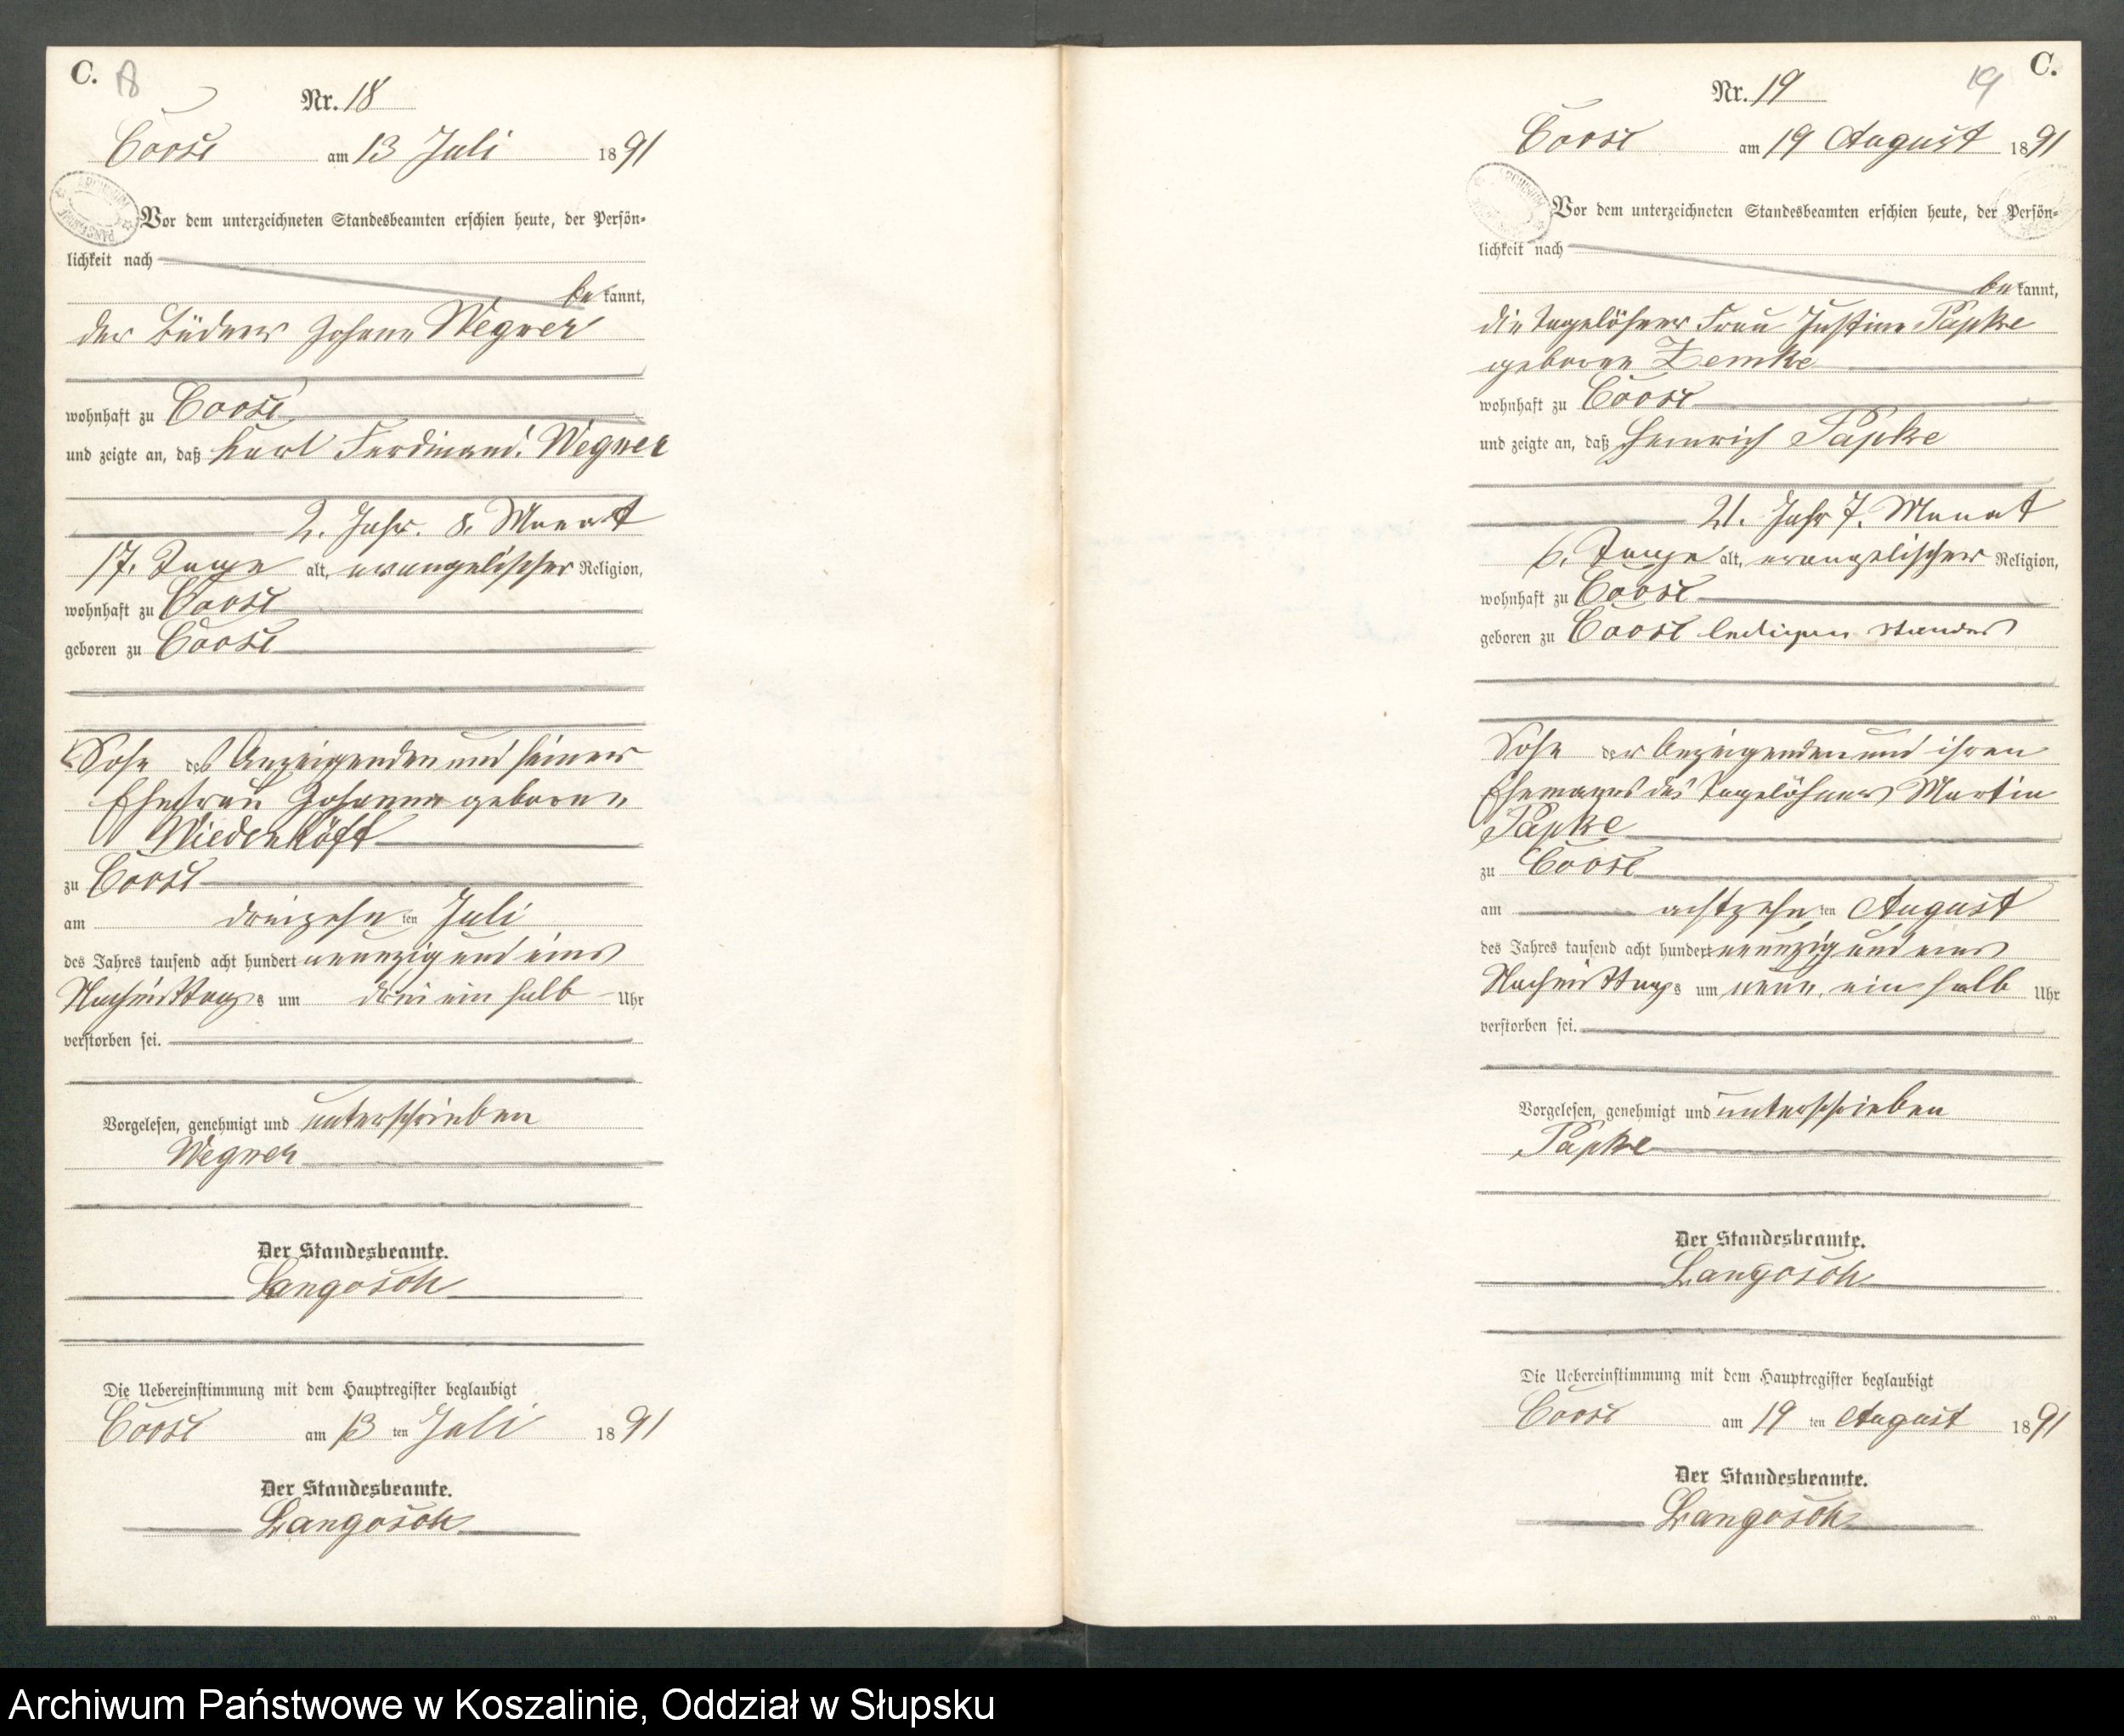 C. 18
Nr. 18
Coose am 13 Juli 1891
Vor dem unterzeichneten Standesbeamten erschien heute, der Persön-
lichkeit nach
be kannt,
der Büdner Johann Wegner
wohnhaft zu Coose
und zeigte an, daß Karl Ferdinand Wegner
2. Jahr. 8. Monat
17. Tage alt, evangelischer Religion,
wohnhaft zu Coose
geboren zu Coose
Sohn des Anzeigenden und seiner
Ehefrau Johanna geborene
Wiedenhöft
zu Coose
am dreizehn ten Juli
des Jahres tausend acht hundert neunzig und eins
Nachmittags um drei ein halb Uhr
verstorben sei.
Vorgelesen, genehmigt und unterschrieben
Wegner
Der Standesbeamte.
Langosch
Die Uebereinstimmung mit dem Hauptregister beglaubigt
Coose am 13 ten Juli 1891
Der Standesbeamte.
Langosch
19 C.
Nr. 19
Coose am 19 August 1891
Vor dem unterzeichneten Standesbeamten erschien heute, der Persön-
lichkeit nach
be kannt,
die Tagelöhner Frau Justine Papke
geborne Zemke
wohnhaft zu Coose
und zeigte an, daß Heinrich Papke
21. Jahr 7. Monat
6. Tage alt, evangelischer Religion,
wohnhaft zu Coose
geboren zu Coose ledigen standes
Sohn der Anzeigenden und ihren
Ehemanns des Tagelöhners Martin
Papke
zu Coose
am achtzehn ten August
des Jahres tausend acht hundert neunzig und eins
Nachmittags um neun ein halb Uhr
verstorben sei.
Vorgelesen, genehmigt und unterschrieben
Papke
Der Standesbeamte.
Langosch
Die Uebereinstimmung mit dem Hauptregister beglaubigt
Coose am 19 ten August 1891
Der Standesbeamte.
Langosch
Archiwum Państwowe w Koszalinie, Oddział w Słupsku